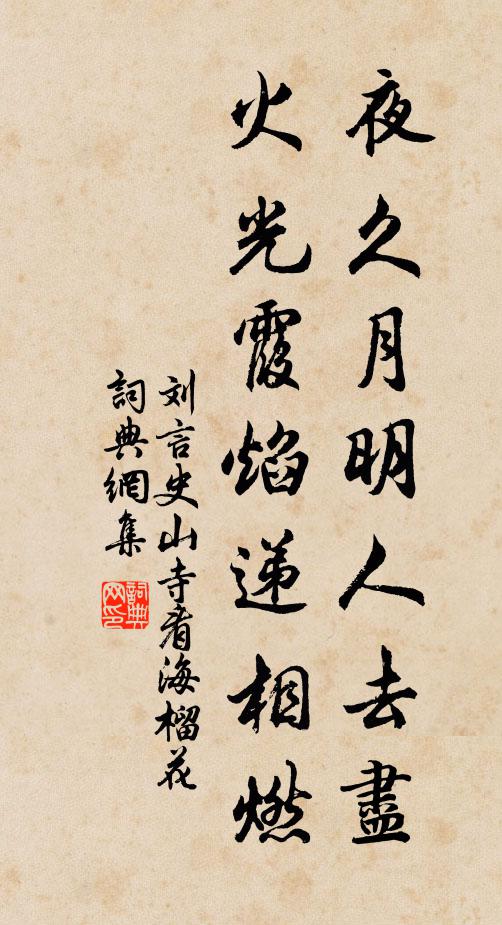 夜久月明人去盡
火光霞焰遞相燃
刘言史山寺看海榴花
詞典網集
詞典网印